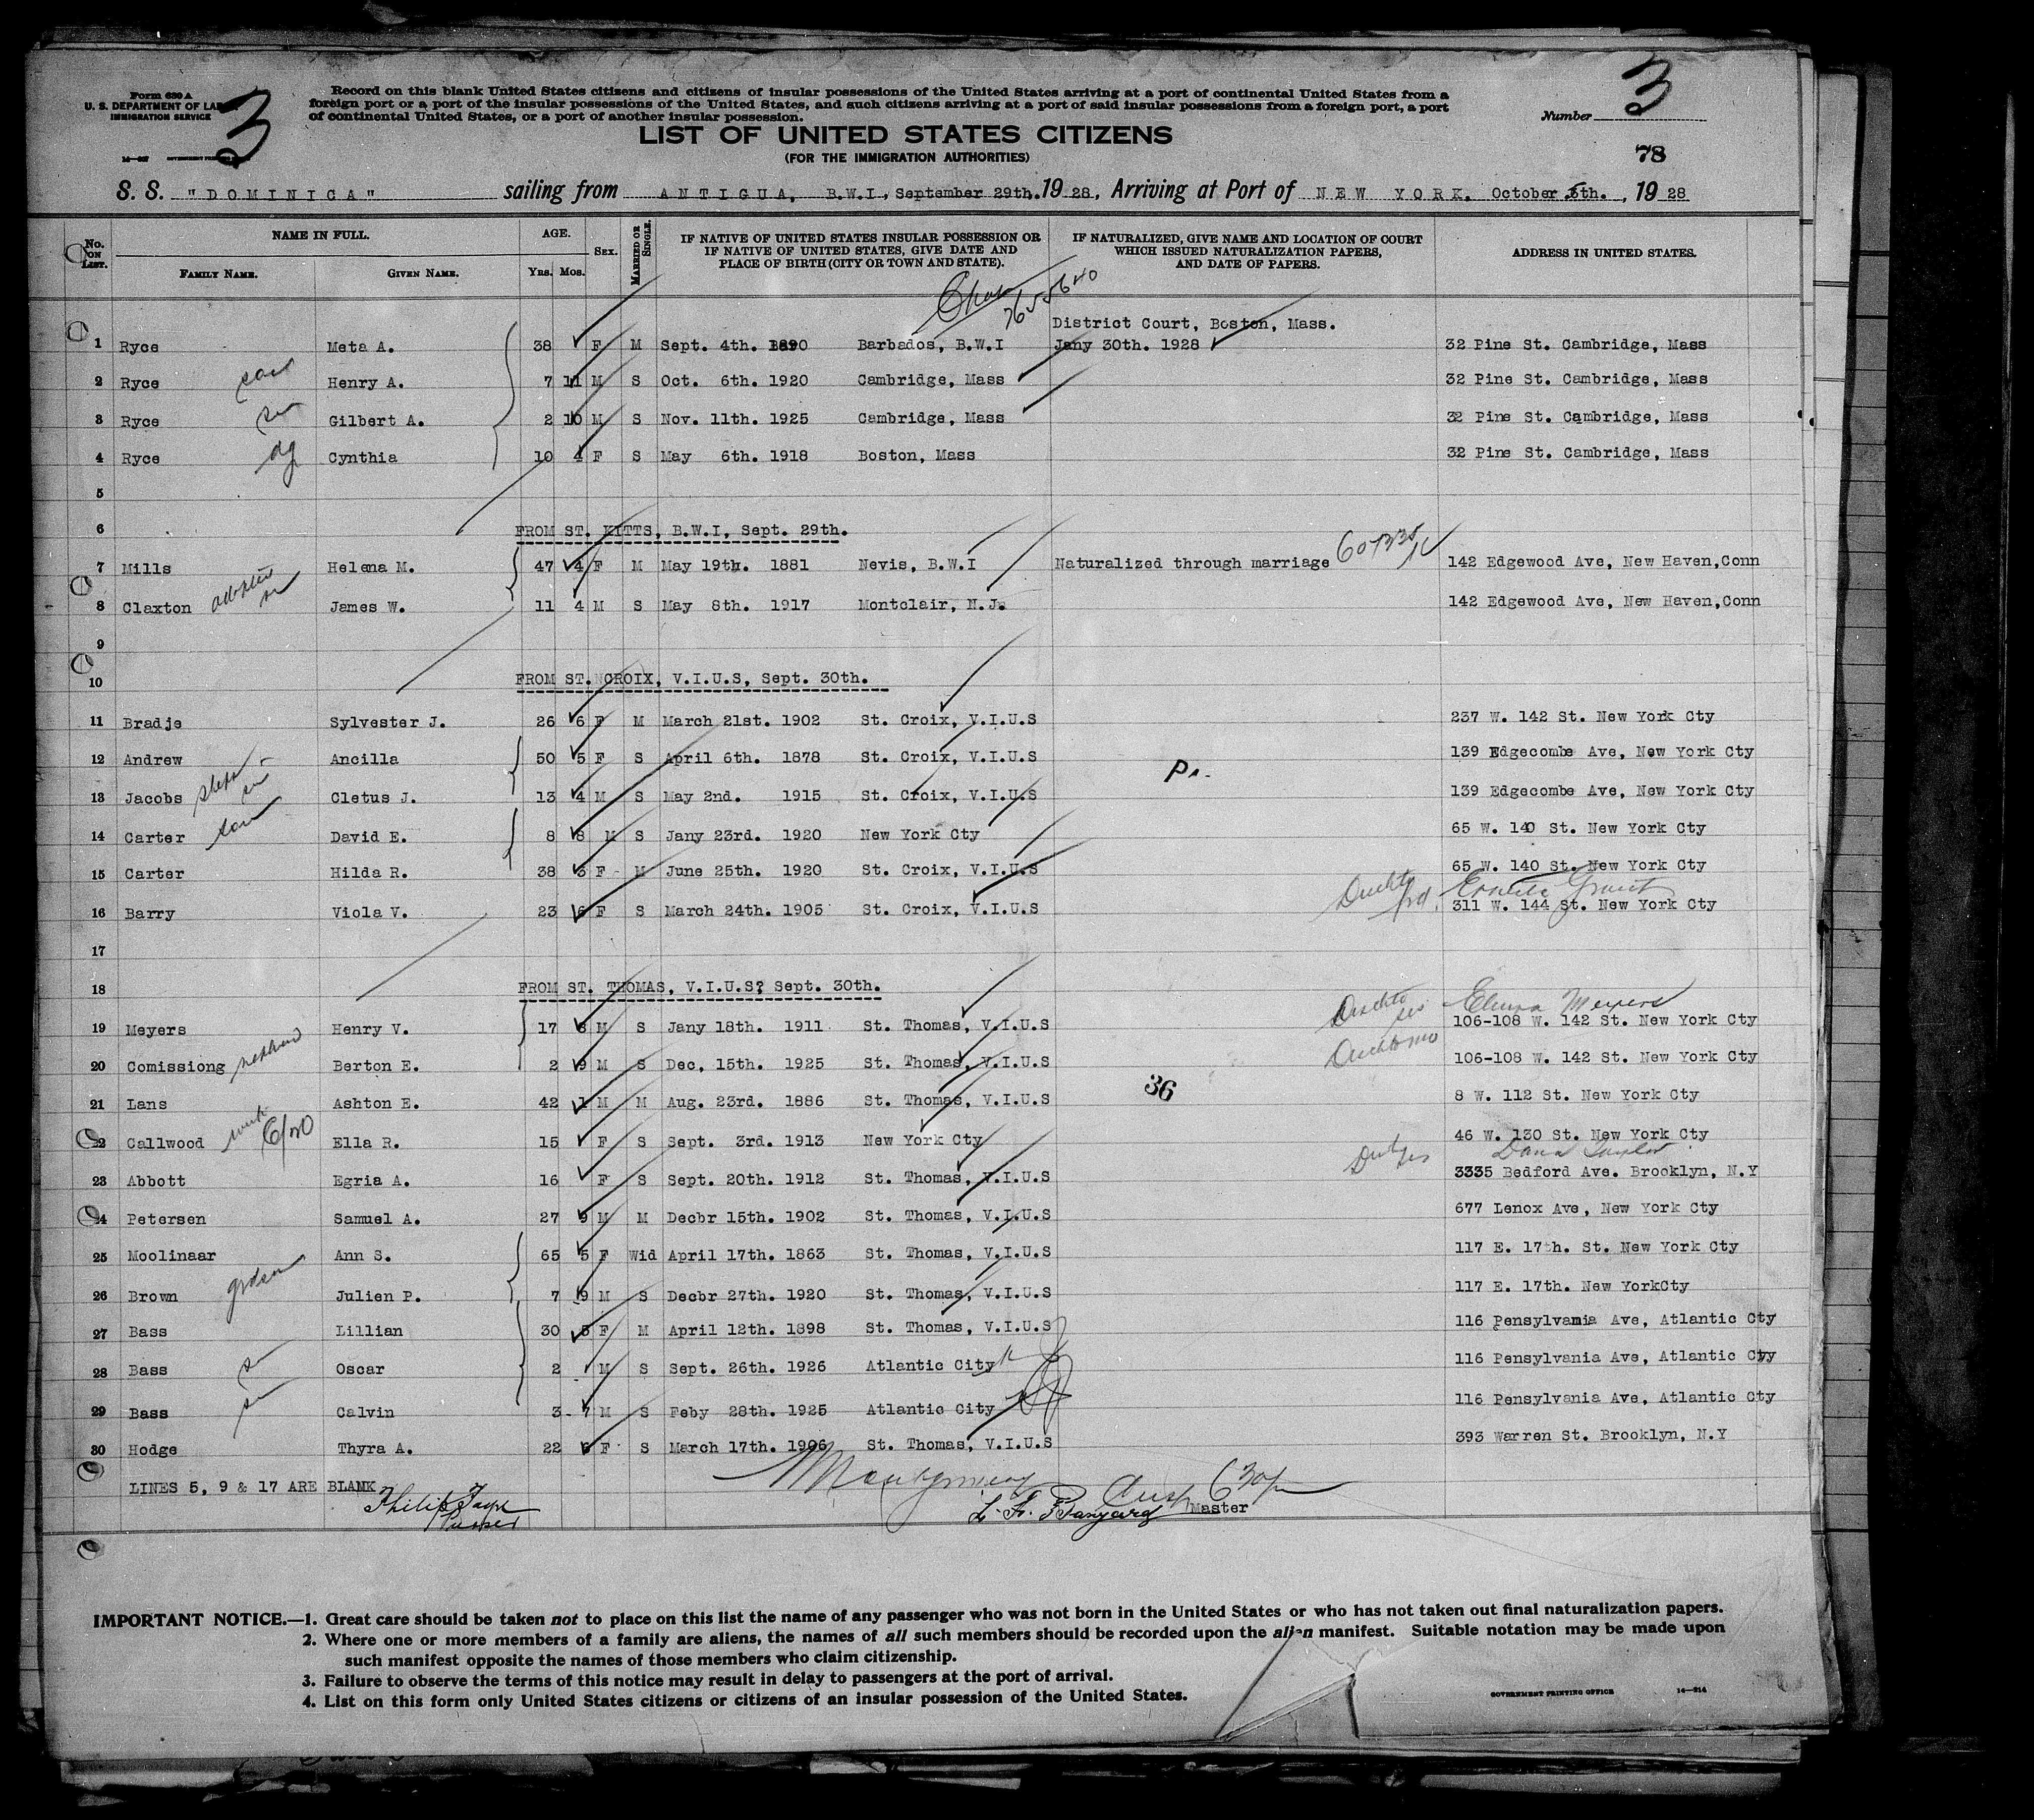 Form 630 A
U. S. DEPARTMENT OF LAB
IMMIGRATION SERVICE
3
Record on this blank United States citizens and citizens of insular possessions of the United States arriving at a port of continental United States from a
foreign port or a port of the insular possessions of the United States, and such citizens arriving at a port of said insular possessions from a foreign port, a port
of continental United States, or a port of another insular possession.
Number 3
LIST OF UNITED STATES CITIZENS
(FOR THE IMMIGRATION AUTHORITIES)
78
S. S. "DOMINICA" sailing from ANTIGUA, B.W.I, September 29th. 1928, Arriving at Port of NEW YORK. October 5th. , 1928
No. ON LIST. NAME IN FULL. FAMILY NAME. GIVEN NAME. AGE. Yrs. Mos. SEX. MARRIED OR SINGLE. IF NATIVE OF UNITED STATES INSULAR POSSESSION OR IF NATIVE OF UNITED STATES, GIVE DATE AND PLACE OF BIRTH (CITY OR TOWN AND STATE). IF NATURALIZED, GIVE NAME AND LOCATION OF COURT WHICH ISSUED NATURALIZATION PAPERS, AND DATE OF PAPERS. ADDRESS IN UNITED STATES.
District Court, Boston, Mass.
1 Ryce Meta A. 38 F M Sept. 4th. 1890 Barbados, B.W.I Jany 30th. 1928 32 Pine St. Cambridge, Mass
2 Ryce son Henry A. 7 11 M S Oct. 6th. 1920 Cambridge, Mass 32 Pine St. Cambridge, Mass
3 Ryce son Gilbert A. 2 10 M S Nov. 11th. 1925 Cambridge, Mass 32 Pine St. Cambridge, Mass
4 Ryce dg Cynthia 10 4 F S May 6th. 1918 Boston, Mass 32 Pine St. Cambridge, Mass
5
6 FROM ST. KITTS, B.W.I, Sept. 29th.
7 Mills Helena M. 47 4 F M May 19th. 1881 Nevis, B.W.I Naturalized through marriage 142 Edgewood Ave, New Haven,Conn
8 Claxton adopted sn James W. 11 4 M S May 8th. 1917 Montclair, N.J. 142 Edgewood Ave, New Haven,Conn
9
10 FROM ST. CROIX, V.I.U.S, Sept. 30th.
11 Bradje Sylvester J. 26 6 F M March 21st. 1902 St. Croix, V.I.U.S 237 W. 142 St. New York Cty
12 Andrew Ancilla 50 5 F S April 6th. 1878 St. Croix, V.I.U.S 139 Edgecombe Ave, New York Cty
13 Jacobs Cletus J. 13 4 M S May 2nd. 1915 St. Croix, V.I.U.S 139 Edgecombe Ave, New York Cty
14 Carter son David E. 8 8 M S Jany 23rd. 1920 New York Cty 65 W. 140 St. New York Cty
15 Carter Hilda R. 38 3 F M June 25th. 1920 St. Croix, V.I.U.S 65 W. 140 St. New York Cty
16 Barry Viola V. 23 6 F S March 24th. 1905 St. Croix, V.I.U.S 311 W. 144 St. New York Cty
17
18 FROM ST. THOMAS, V.I.U.S? Sept. 30th.
19 Meyers Henry V. 17 8 M S Jany 18th. 1911 St. Thomas, V.I.U.S 106-108 W. 142 St. New York Cty
20 Comissiong nephew Berton E. 2 9 M S Dec. 15th. 1925 St. Thomas, V.I.U.S 106-108 W. 142 St. New York Cty
36
21 Lans Ashton E. 42 1 M M Aug. 23rd. 1886 St. Thomas, V.I.U.S 8 W. 112 St. New York Cty
22 Callwood Ella R. 15 F S Sept. 3rd. 1913 New York Cty 46 W. 130 St. New York Cty
23 Abbott Egria A. 16 F S Sept. 20th. 1912 St. Thomas, V.I.U.S 3335 Bedford Ave. Brooklyn, N.Y
24 Petersen Samuel A. 27 9 M M Decbr 15th. 1902 St. Thomas, V.I.U.S 677 Lenox Ave, New York Cty
25 Moolinaar Ann S. 65 5 F Wid April 17th. 1863 St. Thomas, V.I.U.S 117 E. 17th. St. New York Cty
26 Brown grdson Julien P. 7 9 M S Decbr 27th. 1920 St. Thomas, V.I.U.S 117 E. 17th. New YorkCty
27 Bass Lillian 30 5 F M April 12th. 1898 St. Thomas, V.I.U.S 116 Pensylvania Ave, Atlantic Cty
28 Bass sn Oscar 2 M S Sept. 26th. 1926 Atlantic City 116 Pensylvania Ave, Atlantic Cty
29 Bass sn Calvin 3 7 M S Feby 28th. 1925 Atlantic City 116 Pensylvania Ave, Atlantic Cty
30 Hodge Thyra A. 22 6 F S March 17th. 1906 St. Thomas, V.I.U.S 393 Warren St. Brooklyn, N.Y
LINES 5, 9 & 17 ARE BLANK
Montgomery
Purser
Master
IMPORTANT NOTICE.—1. Great care should be taken not to place on this list the name of any passenger who was not born in the United States or who has not taken out final naturalization papers.
2. Where one or more members of a family are aliens, the names of all such members should be recorded upon the alien manifest. Suitable notation may be made upon
such manifest opposite the names of those members who claim citizenship.
3. Failure to observe the terms of this notice may result in delay to passengers at the port of arrival.
4. List on this form only United States citizens or citizens of an insular possession of the United States.
GOVERNMENT PRINTING OFFICE 14—214